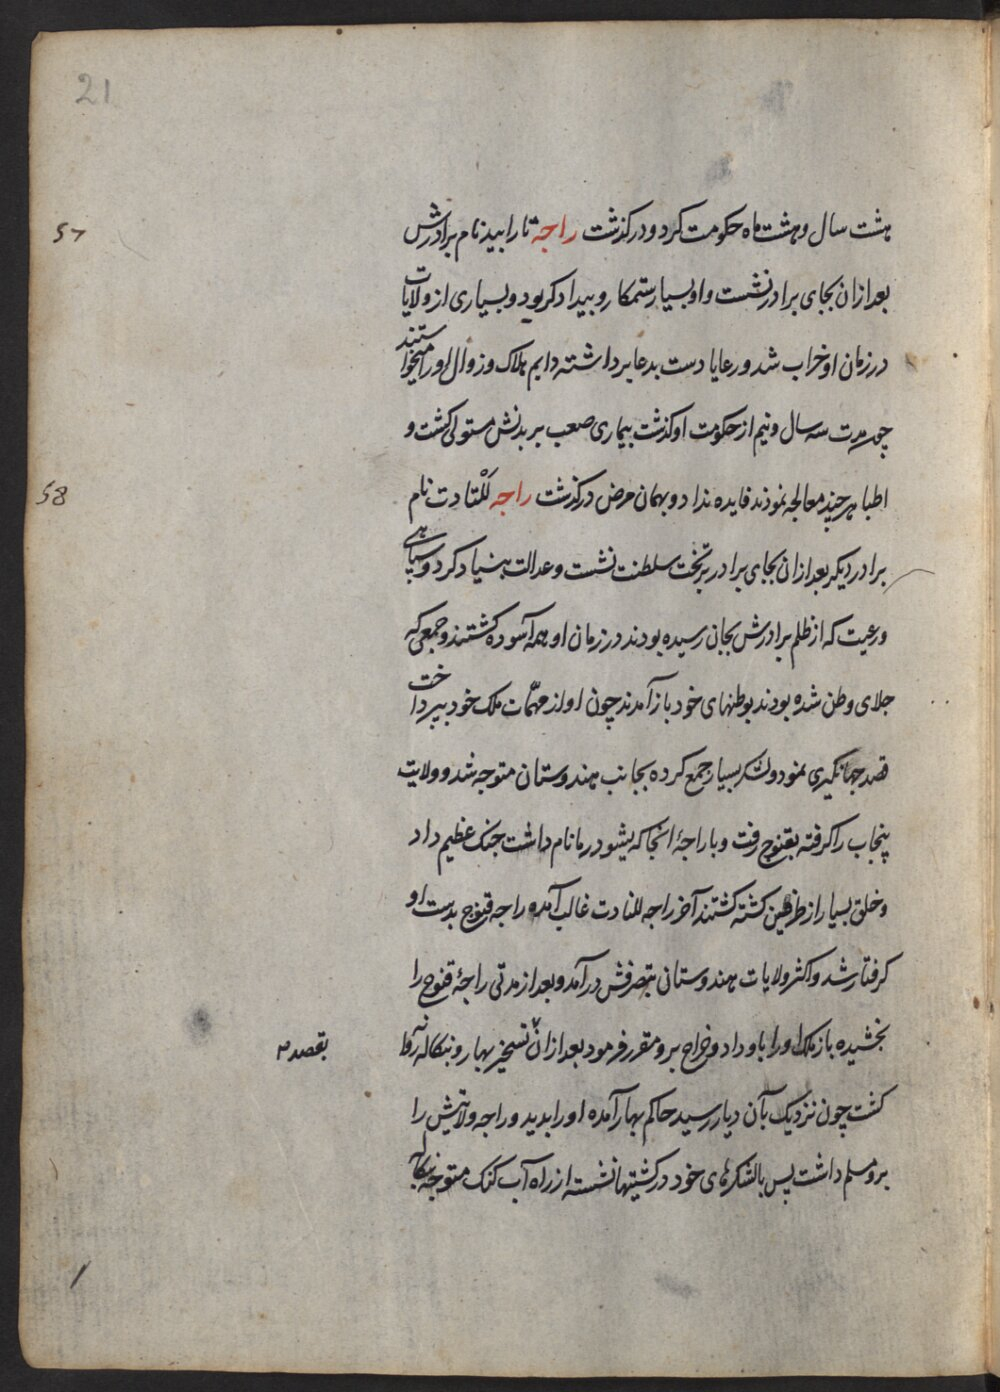 21
57
هشت سال و هشت ماه حکومت کرد و درکذشت راجه تارابید نام برادرش
بعد ازان بجای برادر نشست و او بسیار ستمکار و بیدادکر بود و بسیاری از ولایات
در زمان او خراب شد و رعایا دست بدعا برداشته دایم هلاک و زوال او را میخواستند
چون مدت سه سال و نیم از حکومت او کذشت بیماری صعب بر بدنش مستولی کشت و
58
اطبا هرچند معالجه نمودند فایده نداد و بهمان مرض درکذشت راجه للتادت نام
برادر دیکر بعد ازان بجای برادر بر تخت سلطنت نشست و عدالت بنیاد کرد و سپاهی
و رعیت که از ظلم برادرش بجان رسیده بودند در زمان او همه آسوده کشتند و جمعی که
جلای وطن شده بودند بوطنهای خود باز آمدند چون او از مهمّات ملک خود بپرداخت
قصد جهانکیری نمود و لشکر بسیار جمع کرده بجانب هندوستان متوجه شد و ولایت
پنجاب را کرفته بقنوج رفت و با راجۀ انجا که یشودرما نام داشت جنک عظیم داد
و خلق بسیار از طرفین کشته کشتند آخر راجه للتادت غالب آمده راجه قنوج بدست او
کرفتار شد و اکثر ولایات هندوستان بتصرفش در آمد و بعد از مدتی راجۀ قنوج را
بخشیده باز ملک او را باو داد و خراج برو مقرر فرمود بعد ازان تسخیر بهار و بنکاله روانه
بقصد
کشت چون نزدیک بآن دیار رسید حاکم بهار آمده او را بدید و راجه ولایتش را
برو مسلم داشت پس با لشکرهای خود در کشتیها نشسته از راه آب کنک متوجه بنکاله